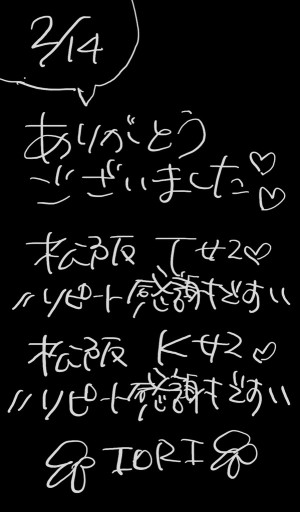 2/14
ありがとう
ございました♡♡
松阪 Tサン♡
〃リピート感謝です〃
松阪 Kサン♡
〃リピート感謝です〃
IORI